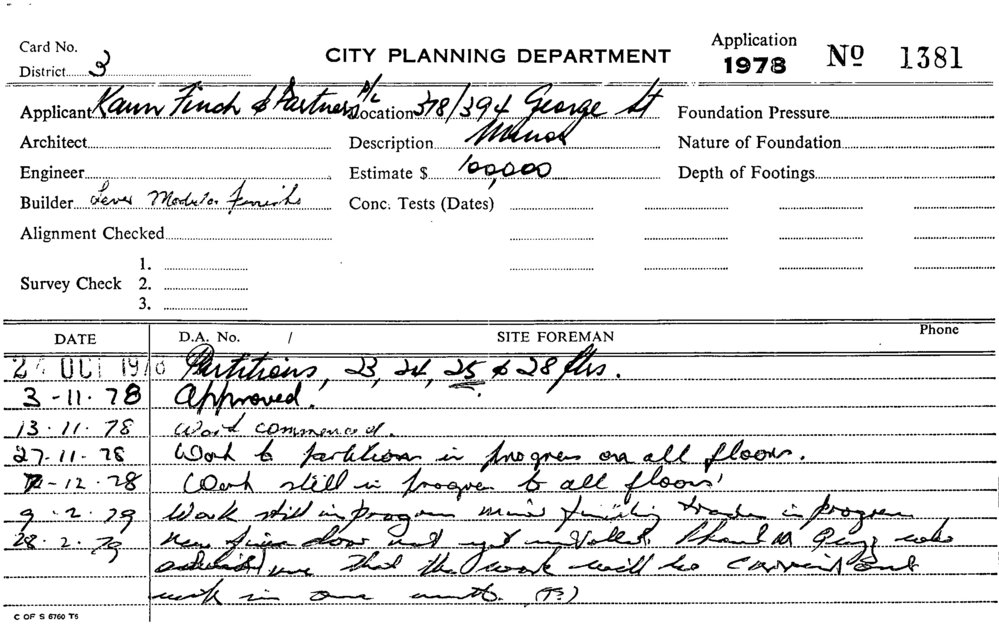 Card No.
District 3
CITY PLANNING DEPARTMENT
Application
1978
No 1381
Applicant Kann Finch & Partners P/L
Location 378/394 George St
Foundation Pressure
Architect
Description Minor
Nature of Foundation
Engineer
Estimate $ 100,000
Depth of Footings
Builder
Conc. Tests (Dates)
Alignment Checked
Survey Check
1.
2.
3.
DATE D.A. No. / SITE FOREMAN Phone
OCT 1978 Partitions, 23, 24, 25 & 28 flrs.
3-11-78 Approved.
13.11.78 Work commenced.
27-11-78 Work to partitions in progress on all floors.
-12-78 Work still in progress to all floors
9.2.79 Work still in progress minor finishing trades in progress
28.2.79 New door not yet installed. who
me that the work will be carried out
in one
C OF S 6760 T6